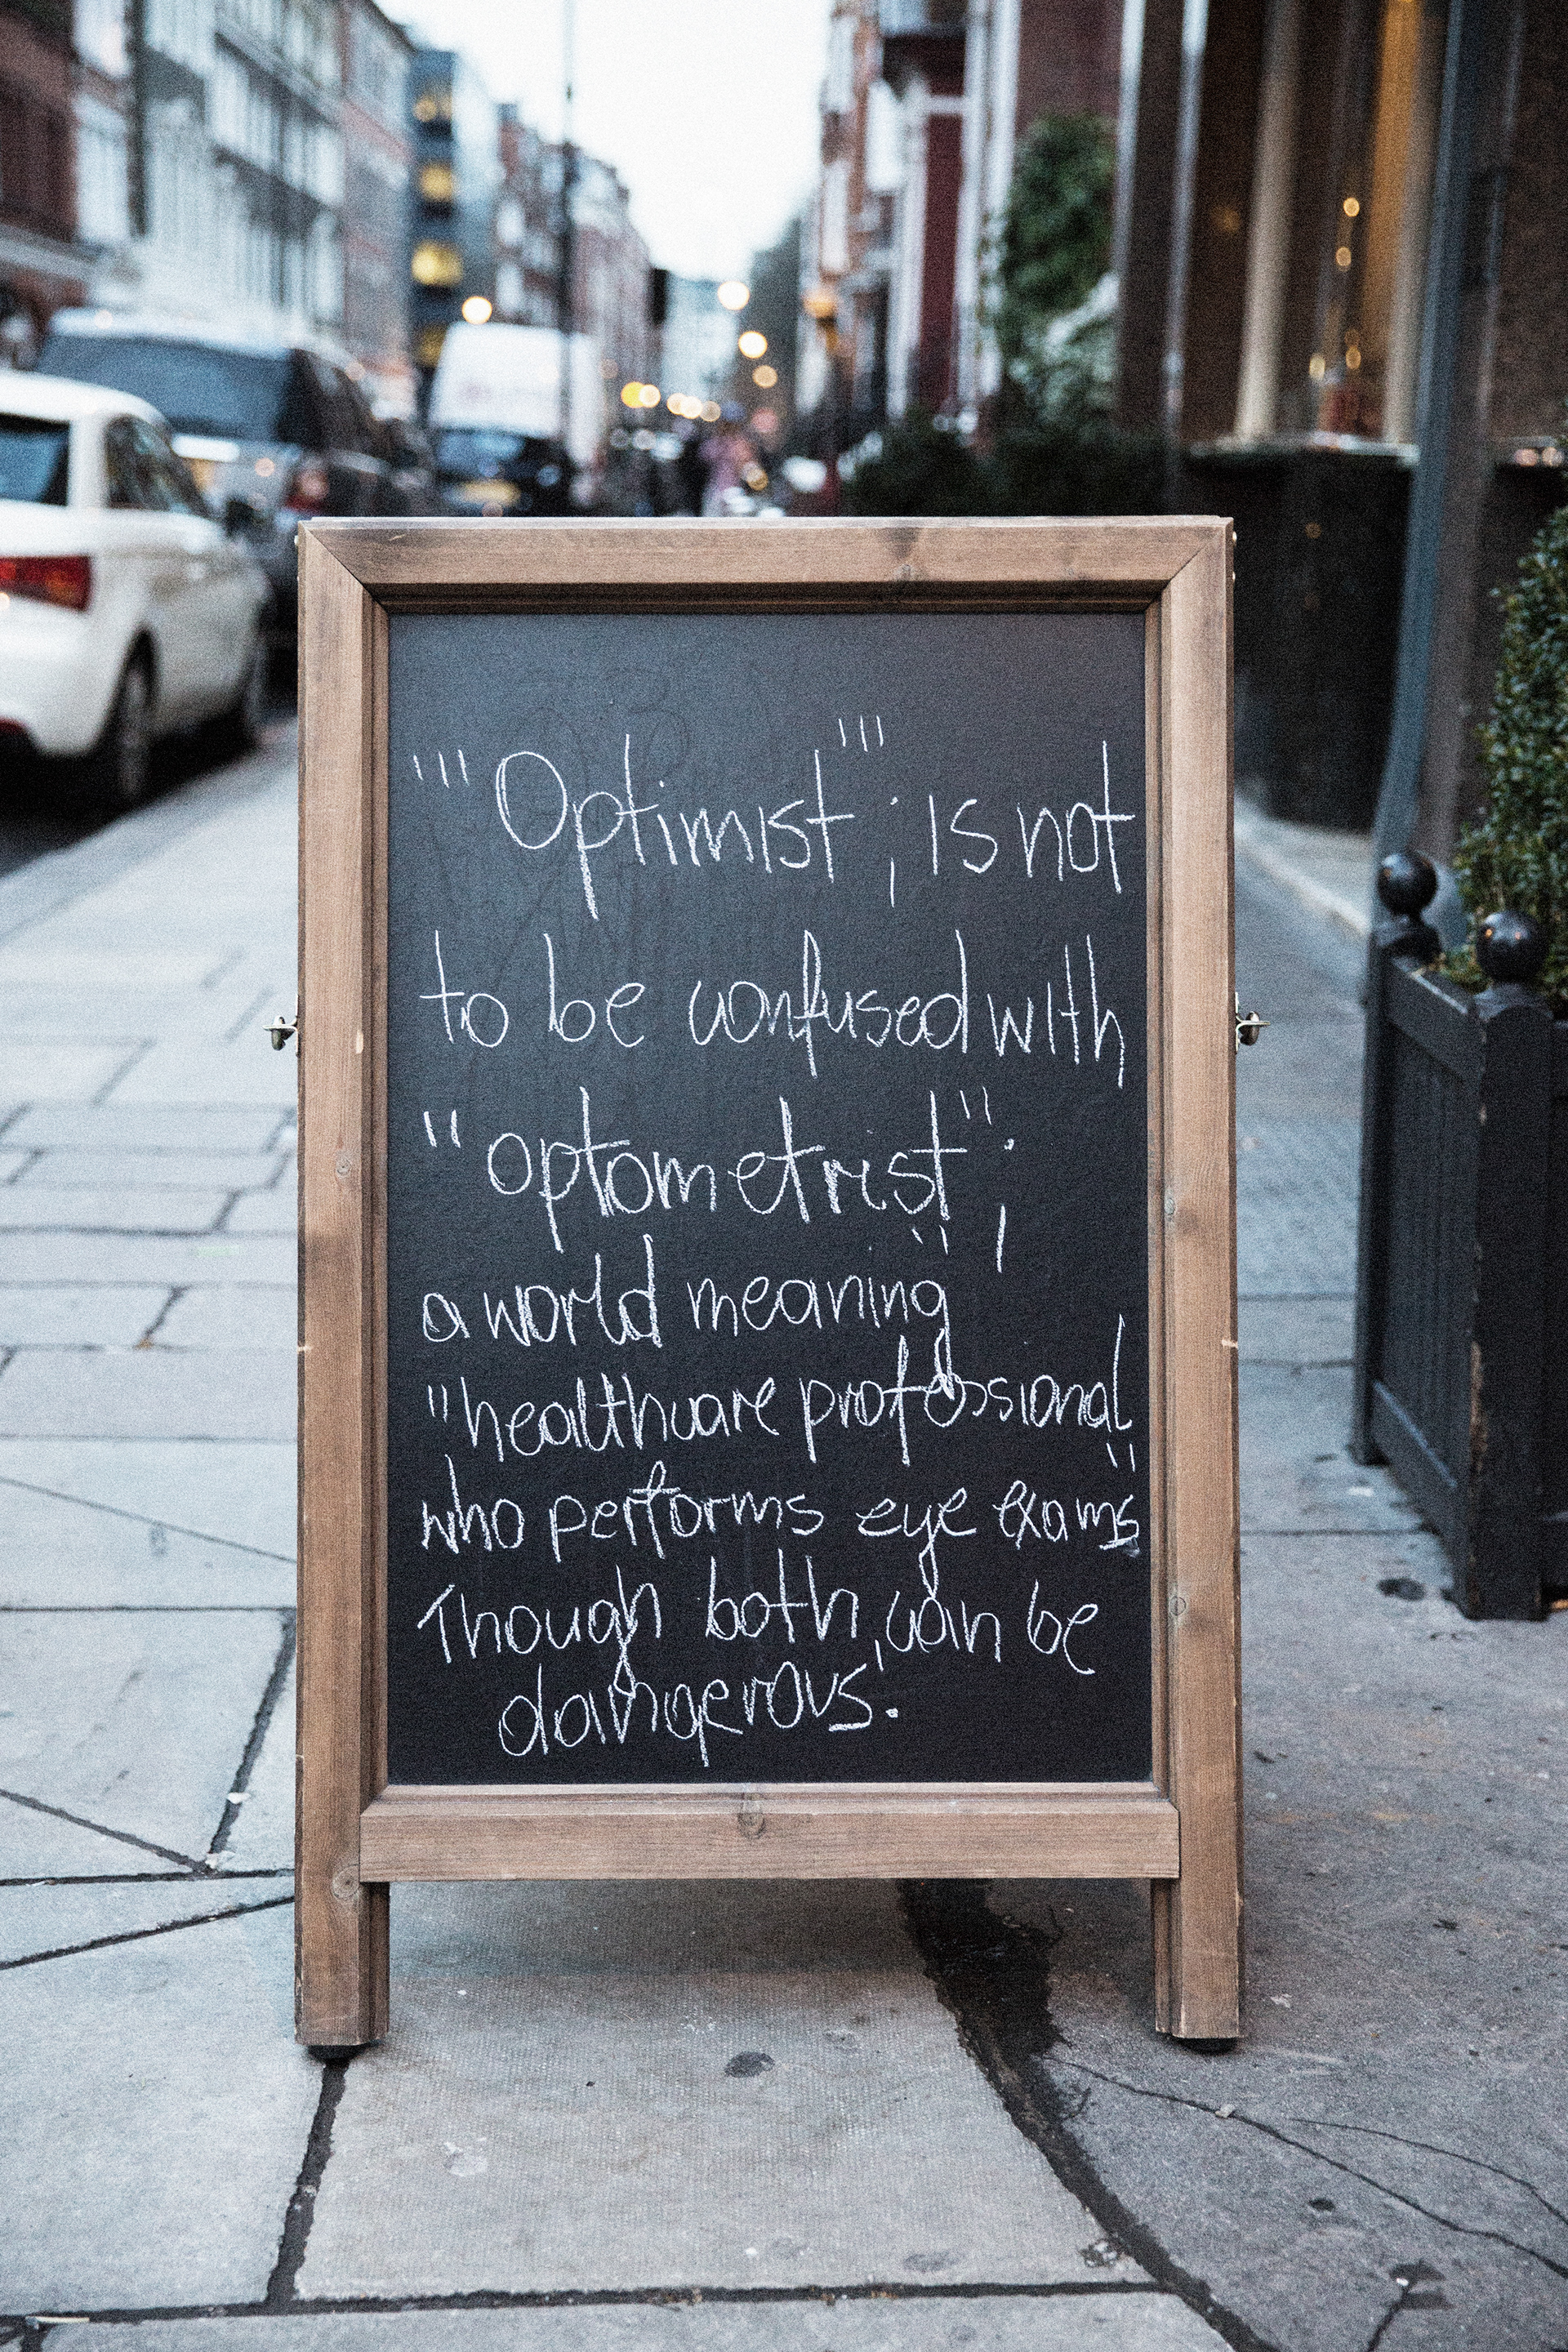 "'Optimist'"; is not
to be confused with
"optometrist";
a world meaning
"healthcare professional"
who performs eye exams
Though both, can be
dangerous.